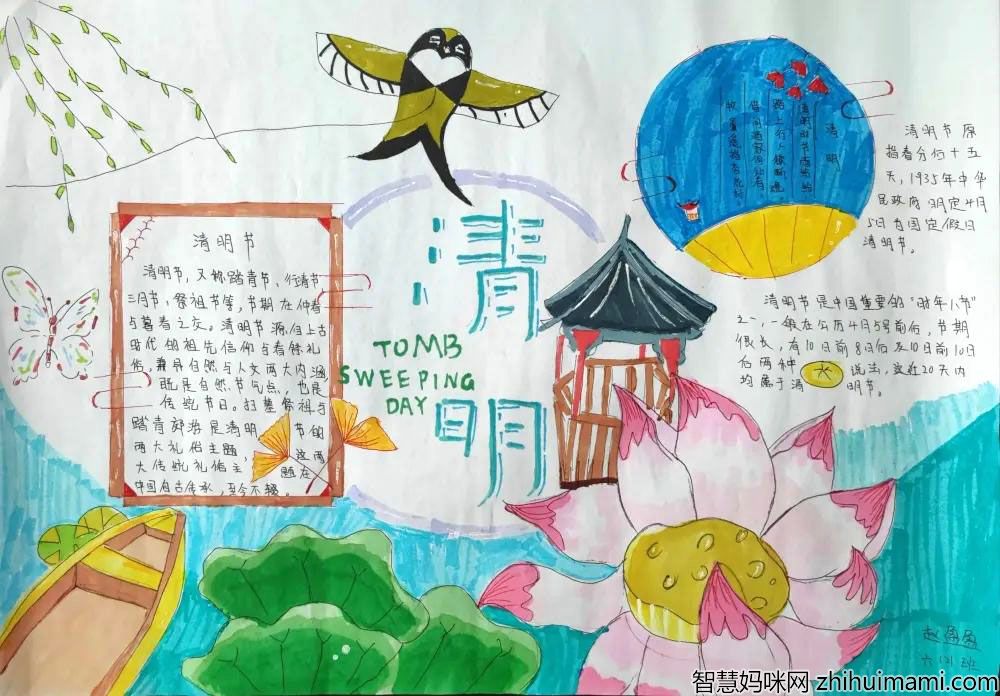 清明节
清明节，又称踏青节、行清节
三月节，祭祖节等，节期在仲春
与暮春之交。清明节源自上古
时代的祖先信仰与春祭礼
俗，兼具自然与人文两大内涵
既是自然节气点，也是
传统节日。扫墓祭祖与
踏青郊游是清明节的
两大礼俗主题，这两
大传统礼俗主题在
中国自古传承，至今不辍。
清明
TOMB
SWEEPING
DAY
清明
清明时节雨纷纷
路上行人欲断魂
借问酒家何处有
牧童遥指杏花村
清明节原
指春分后十五
天，1935年中华
民政府明定4月
5日为国定假日
清明节。
清明节是中国重要的"时年八节"
之一，一般在公历4月5号前后，节期
很长，有10日前8日后及10日前10日
后两种说法，这近20天内
均属于清明节。
六(2)班
智慧妈咪网 zhihuimami.com